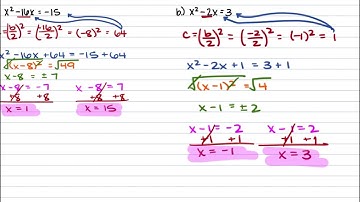 x² - 16x = -15
c = (b/2)² = (-16/2)² = (-8)² = 64
x² - 16x + 64 = -15 + 64
√(x-8)² = √49
x - 8 = ± 7
x - 8 = -7 x - 8 = 7
+8 +8 +8 +8
x = 1 x = 15
b) x² - 2x = 3
c = (b/2)² = (-2/2)² = (-1)² = 1
x² - 2x + 1 = 3 + 1
√(x-1)² = √4
x - 1 = ± 2
x - 1 = -2 x - 1 = 2
+1 +1 +1 +1
x = -1 x = 3